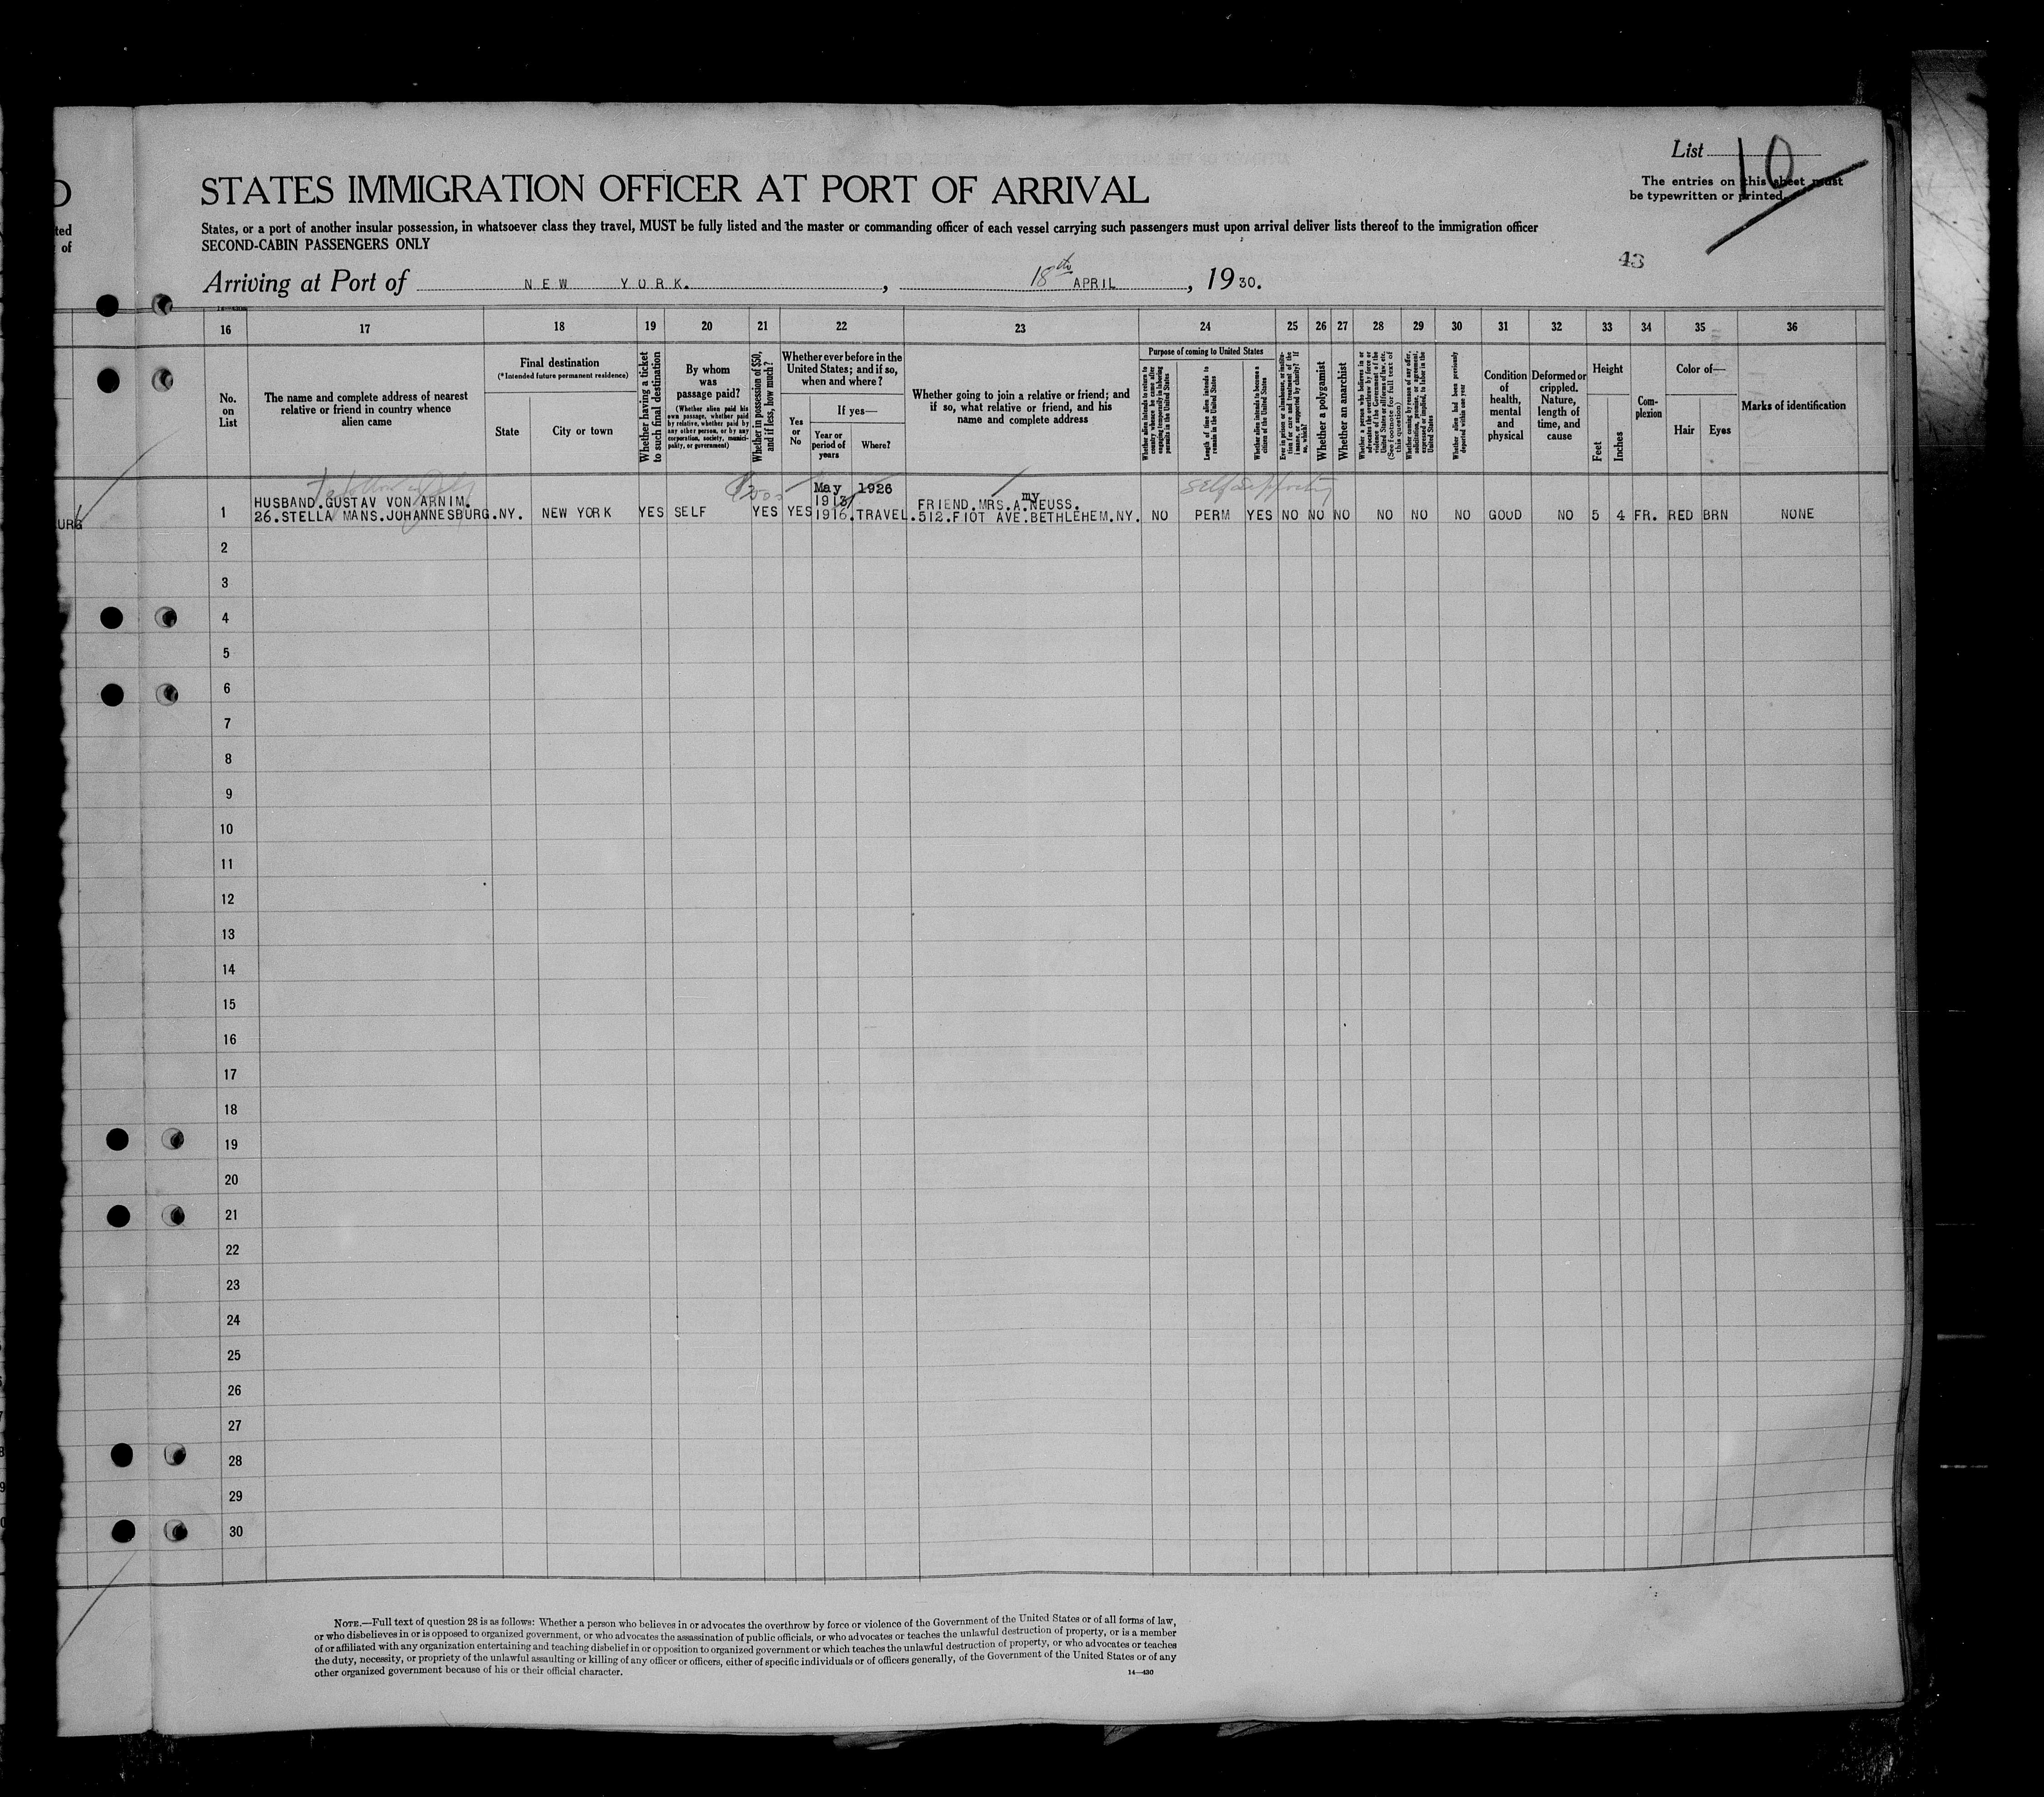 List 10
The entries on this sheet must
be typewritten or printed.
D
STATES IMMIGRATION OFFICER AT PORT OF ARRIVAL
ted
of
States, or a port of another insular possession, in whatsoever class they travel, MUST be fully listed and the master or commanding officer of each vessel carrying such passengers must upon arrival deliver lists thereof to the immigration officer
SECOND-CABIN PASSENGERS ONLY
43
Arriving at Port of NEW YORK. , 18th APRIL , 1930.
16 17 18 19 20 21 22 23 24 25 26 27 28 29 30 31 32 33 34 35 36
No.
on
List
The name and complete address of nearest
relative or friend in country whence
alien came
Final destination
(*Intended future permanent residence)
State
City or town
Whether having a ticket
to such final destination
By whom
was
passage paid?
(Whether alien paid his
own passage, whether paid
by relative, whether paid by
any other person, or by any
corporation, society, munici-
pality, or government)
Whether in possession of $50,
and if less, how much?
Whether ever before in the
United States; and if so,
when and where?
Yes
or
No
If yes—
Year or
period of
years
Where?
Whether going to join a relative or friend; and
if so, what relative or friend, and his
name and complete address
Purpose of coming to United States
Whether alien intends to return to
country whence he came after
engaging temporarily in laboring
pursuits in the United States
Length of time alien intends to
remain in the United States
Whether alien intends to become a
citizen of the United States
Ever in prison or almshouse, or institu-
tion for care and treatment of the
insane, or supported by charity? If
so, which?
Whether a polygamist
Whether an anarchist
Whether a person who believes in or
advocates the overthrow by force or
violence of the Government of the
United States or all forms of law, etc.
(See footnote for full text of
this question)
Whether coming by reason of any offer,
solicitation, promise, or agreement,
expressed or implied, to labor in the
United States
Whether alien had been previously
deported within one year
Condition
of
health,
mental
and
physical
Deformed or
crippled.
Nature,
length of
time, and
cause
Height
Feet
Inches
Com-
plexion
Color of—
Hair
Eyes
Marks of identification
$500
May 1926
self supporting
URG
1 HUSBAND.GUSTAV VON ARNIM.
26.STELLA MANS.JOHANNESBURG. NY. NEW YORK YES SELF YES YES 1913/
1916. TRAVEL. FRIEND.MRS.A.NEUSS.
my
512.FIOT AVE.BETHLEHEM.NY. NO PERM YES NO NO NO NO NO NO GOOD NO 5 4 FR. RED BRN NONE
2
3
4
5
6
7
8
9
10
11
12
13
14
15
16
17
18
19
20
21
22
23
24
25
26
27
28
29
30
NOTE.—Full text of question 28 is as follows: Whether a person who believes in or advocates the overthrow by force or violence of the Government of the United States or of all forms of law,
or who disbelieves in or is opposed to organized government, or who advocates the assassination of public officials, or who advocates or teaches the unlawful destruction of property, or is a member
of or affiliated with any organization entertaining and teaching disbelief in or opposition to organized government or which teaches the unlawful destruction of property, or who advocates or teaches
the duty, necessity, or propriety of the unlawful assaulting or killing of any officer or officers, either of specific individuals or of officers generally, of the Government of the United States or of any
other organized government because of his or their official character.
14—430